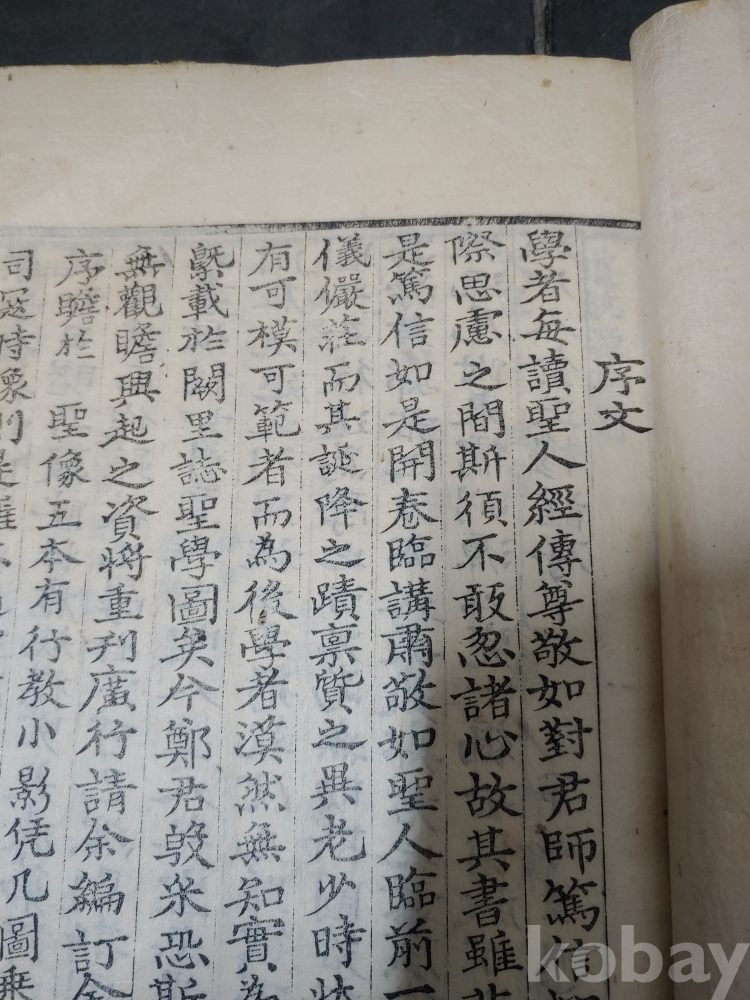 序文
學者每讀聖人經傳尊敬如對君師篤信
際思慮之間斯須不敢忽諸心故其書雖
是篤信如是開卷臨講肅敬如聖人臨前一
儀儼莊而其誕降之蹟禀質之異老少時
有可模可範者而為後學者漠然無知實為
槩載於闕里誌聖學圖矣今鄭君 恐斯
無觀瞻興起之資將重刊廣行請余編訂
序瞻於 聖像五本有行教小影凭几圖乗
司寇時像
kobay